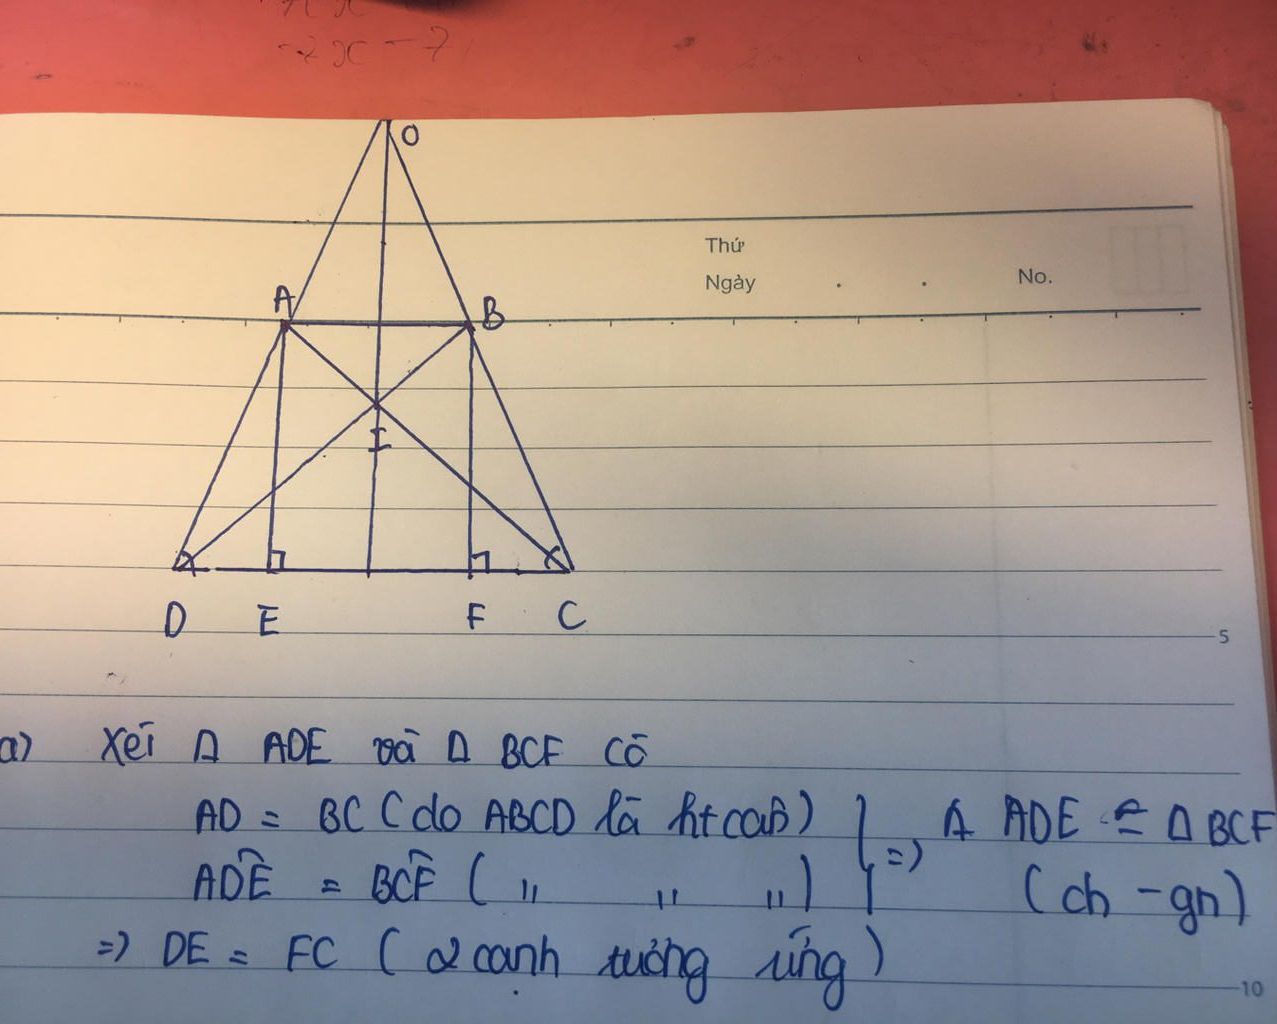 -2x - 7
O
Thứ
Ngày . . No.
A B
I
D E F C
5
a) Xét Δ ADE và Δ BCF có
AD = BC (do ABCD là ht cân) } => Δ ADE = Δ BCF
ADE = BCF ( " " " ) (ch - gn)
=> DE = FC ( 2 cạnh tương ứng )
10